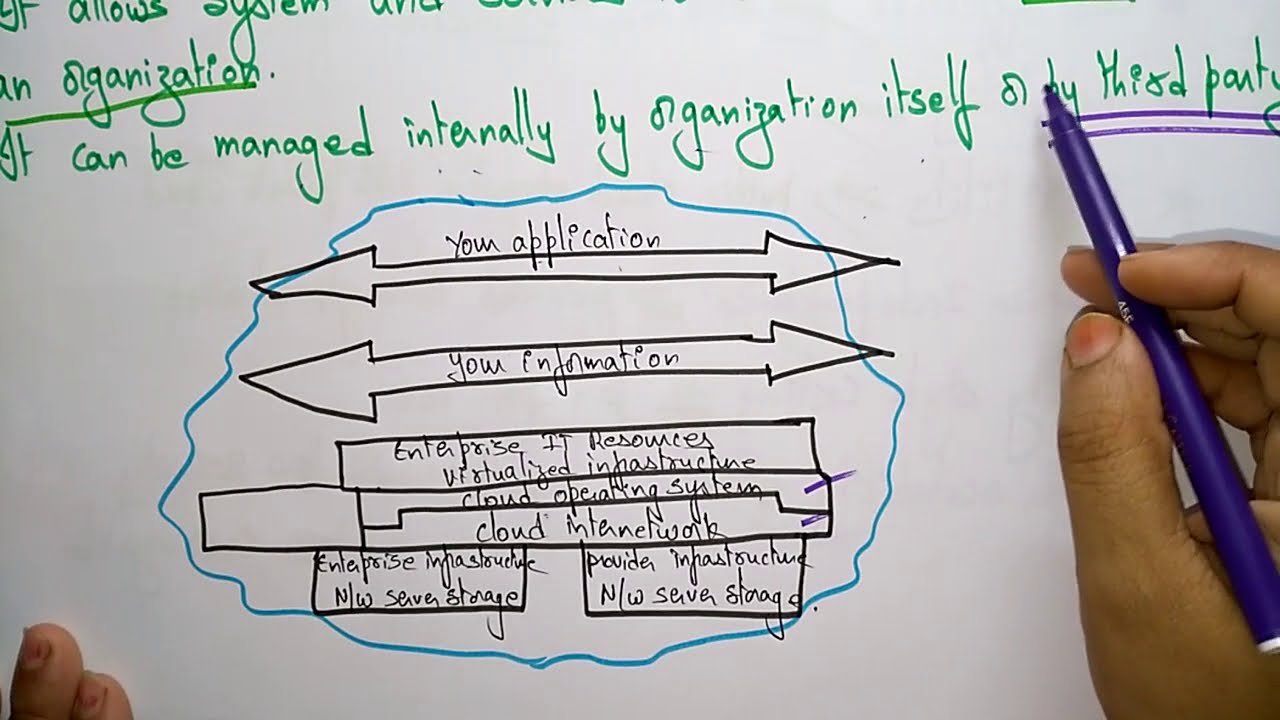 It allows system and
an organization.
It can be managed internally by organization itself or by third party
Your application
Your information
Enterprise IT Resources
virtualized infrastructure
cloud operating system
cloud internetwork
Enterprise infrastructure
N/w server storage
provider infrastructure
N/w server storage.